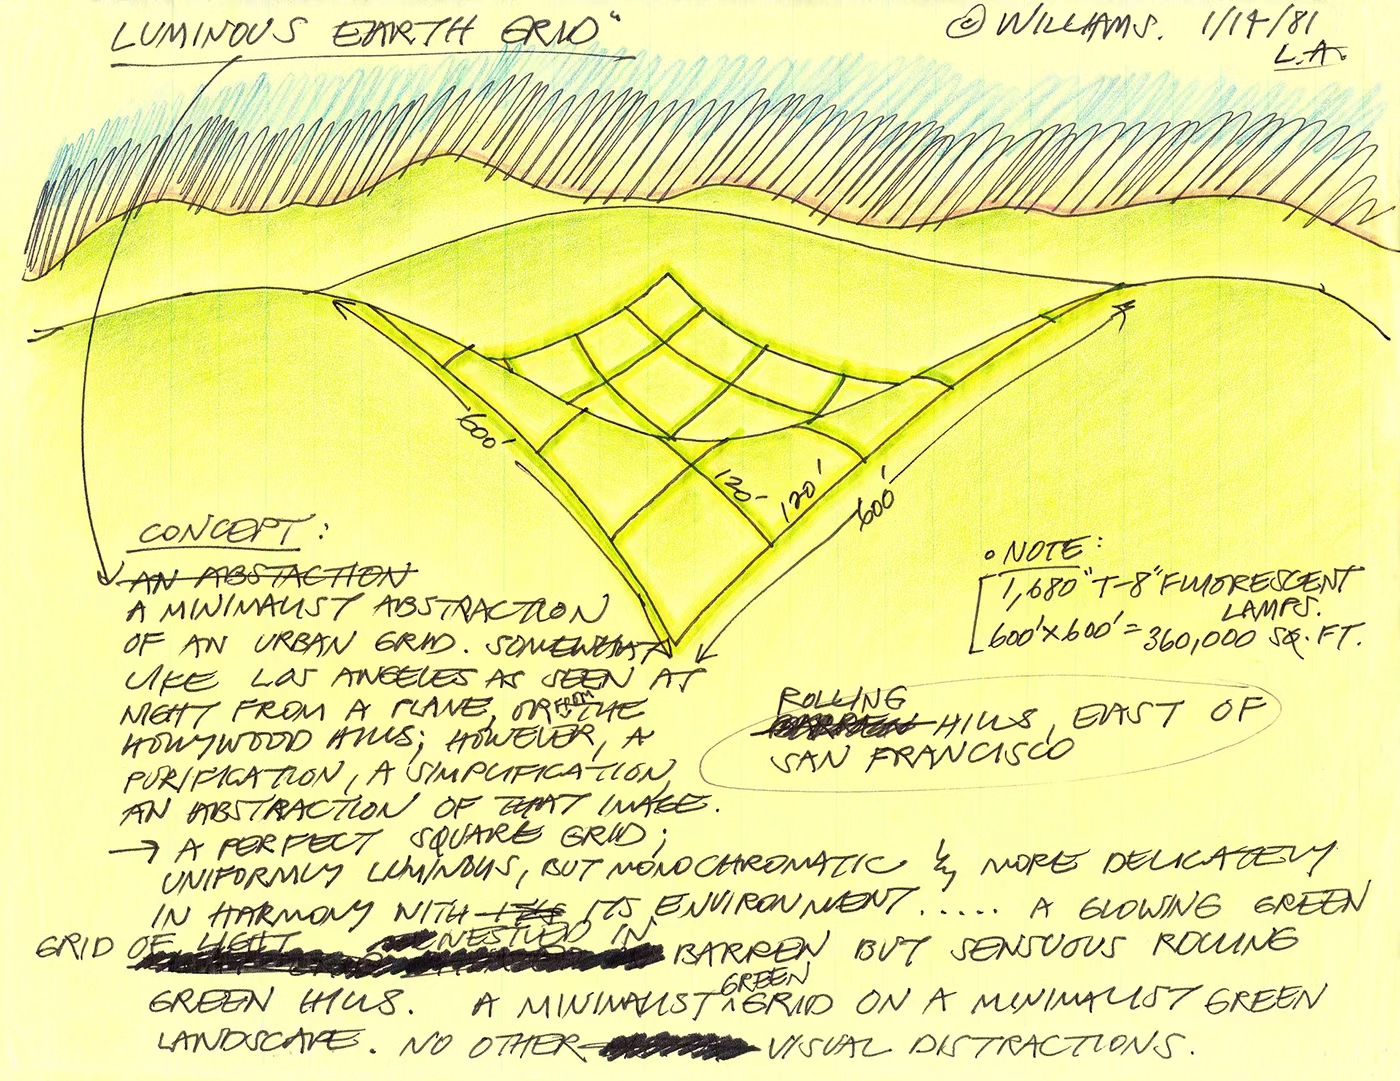 LUMINOUS EARTH GRID"
© WILLIAMS. 1/14/81
L.A.
600'
120'
120'
600'
CONCEPT:
AN ABSTACTION
A MINIMALIST ABSTRACTION
OF AN URBAN GRID. SOMEWHAT
LIKE LOS ANGELES AS SEEN AT
NIGHT FROM A PLANE, OR FROM THE
HOLLYWOOD HILLS; HOWEVER, A
PURIFICATION, A SIMPLIFICATION,
AN ABSTRACTION OF THAT IMAGE.
→ A PERFECT SQUARE GRID;
UNIFORMLY LUMINOUS, BUT MONOCHROMATIC & MORE DELICATELY
IN HARMONY WITH ITS ENVIRONMENT..... A GLOWING GREEN
GRID OF LIGHT NESTLED IN BARREN BUT SENSUOUS ROLLING
GREEN HILLS. A MINIMALIST GREEN GRID ON A MINIMALIST GREEN
LANDSCAPE. NO OTHER VISUAL DISTRACTIONS.
• NOTE:
1,680 "T-8" FLUORESCENT
LAMPS.
600' x 600' = 360,000 SQ. FT.
ROLLING
BARREN HILLS, EAST OF
SAN FRANCISCO